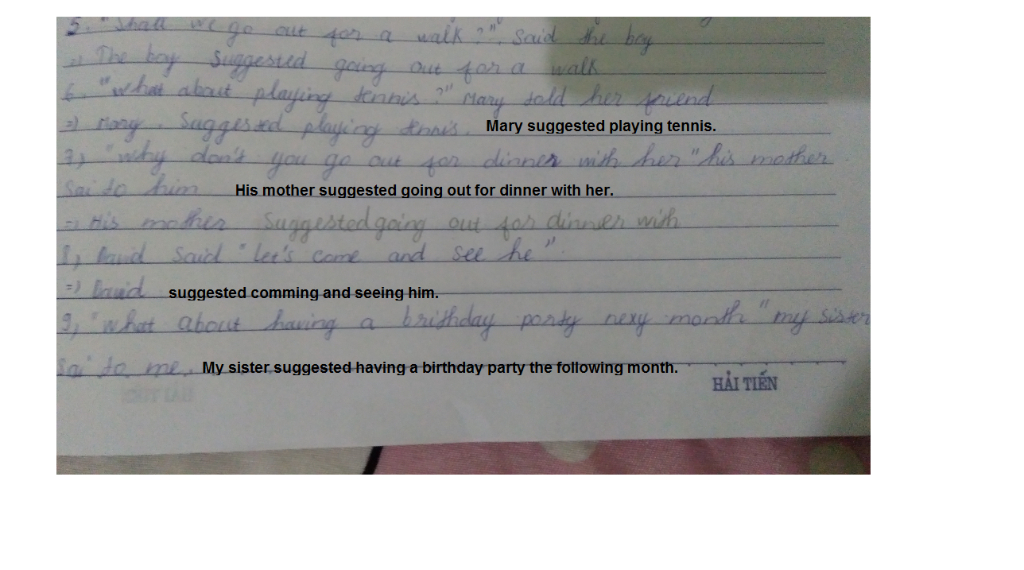 5. "Shall we go out for a walk?". Said the boy
=) The boy Suggested going out for a walk
6. "what about playing tennis?" Mary told her friend
=) Mary. Suggested playing tennis. Mary suggested playing tennis.
7) "why don't you go out for dinner with her" his mother
Sai to him His mother suggested going out for dinner with her.
=) His mother Suggested going out for dinner with
8) David Said "let's come and see he".
=) David suggested comming and seeing him.
9, "what about having a brithday party nexy month "my sister
Sai to me. My sister suggested having a birthday party the following month.
HẢI TIẾN